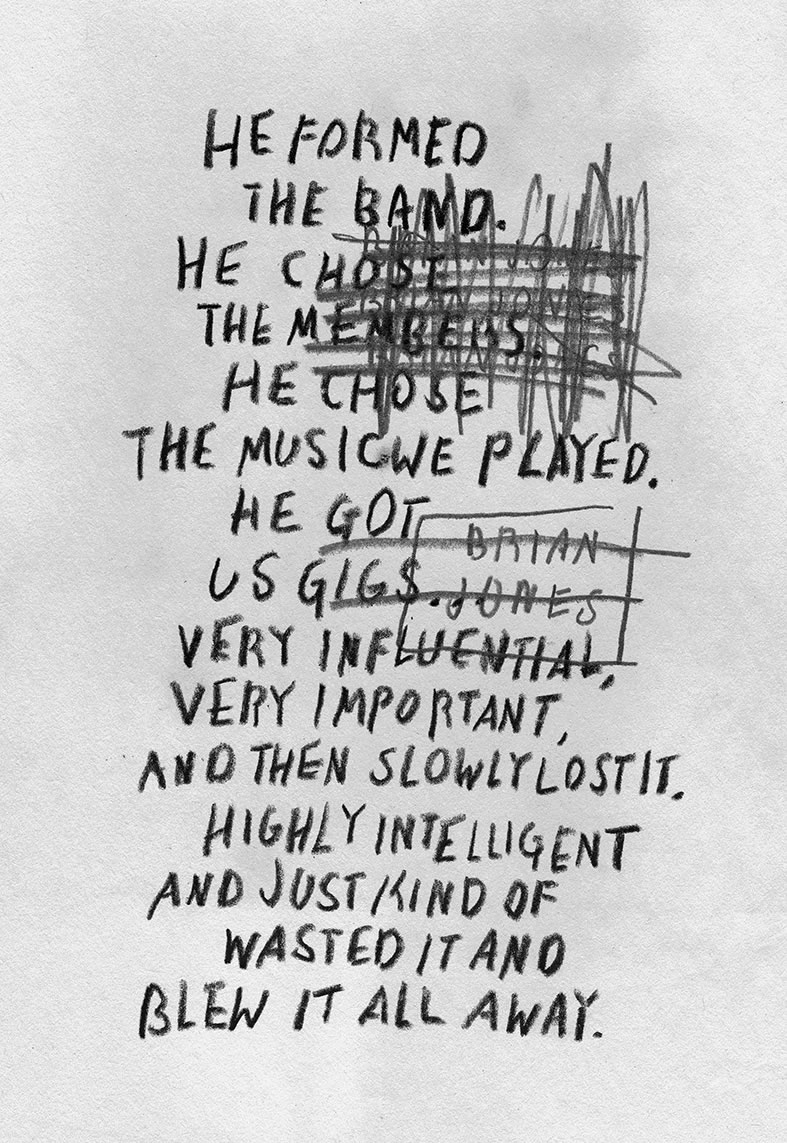 HE FORMED
THE BAND.
HE CHOSE
THE MEMBERS.
HE CHOSE
THE MUSIC WE PLAYED.
HE GOT
US GIGS.
VERY INFLUENTIAL,
VERY IMPORTANT,
AND THEN SLOWLY LOST IT.
HIGHLY INTELLIGENT
AND JUST KIND OF
WASTED IT AND
BLEW IT ALL AWAY.
JONES
JONES
BRIAN
JONES